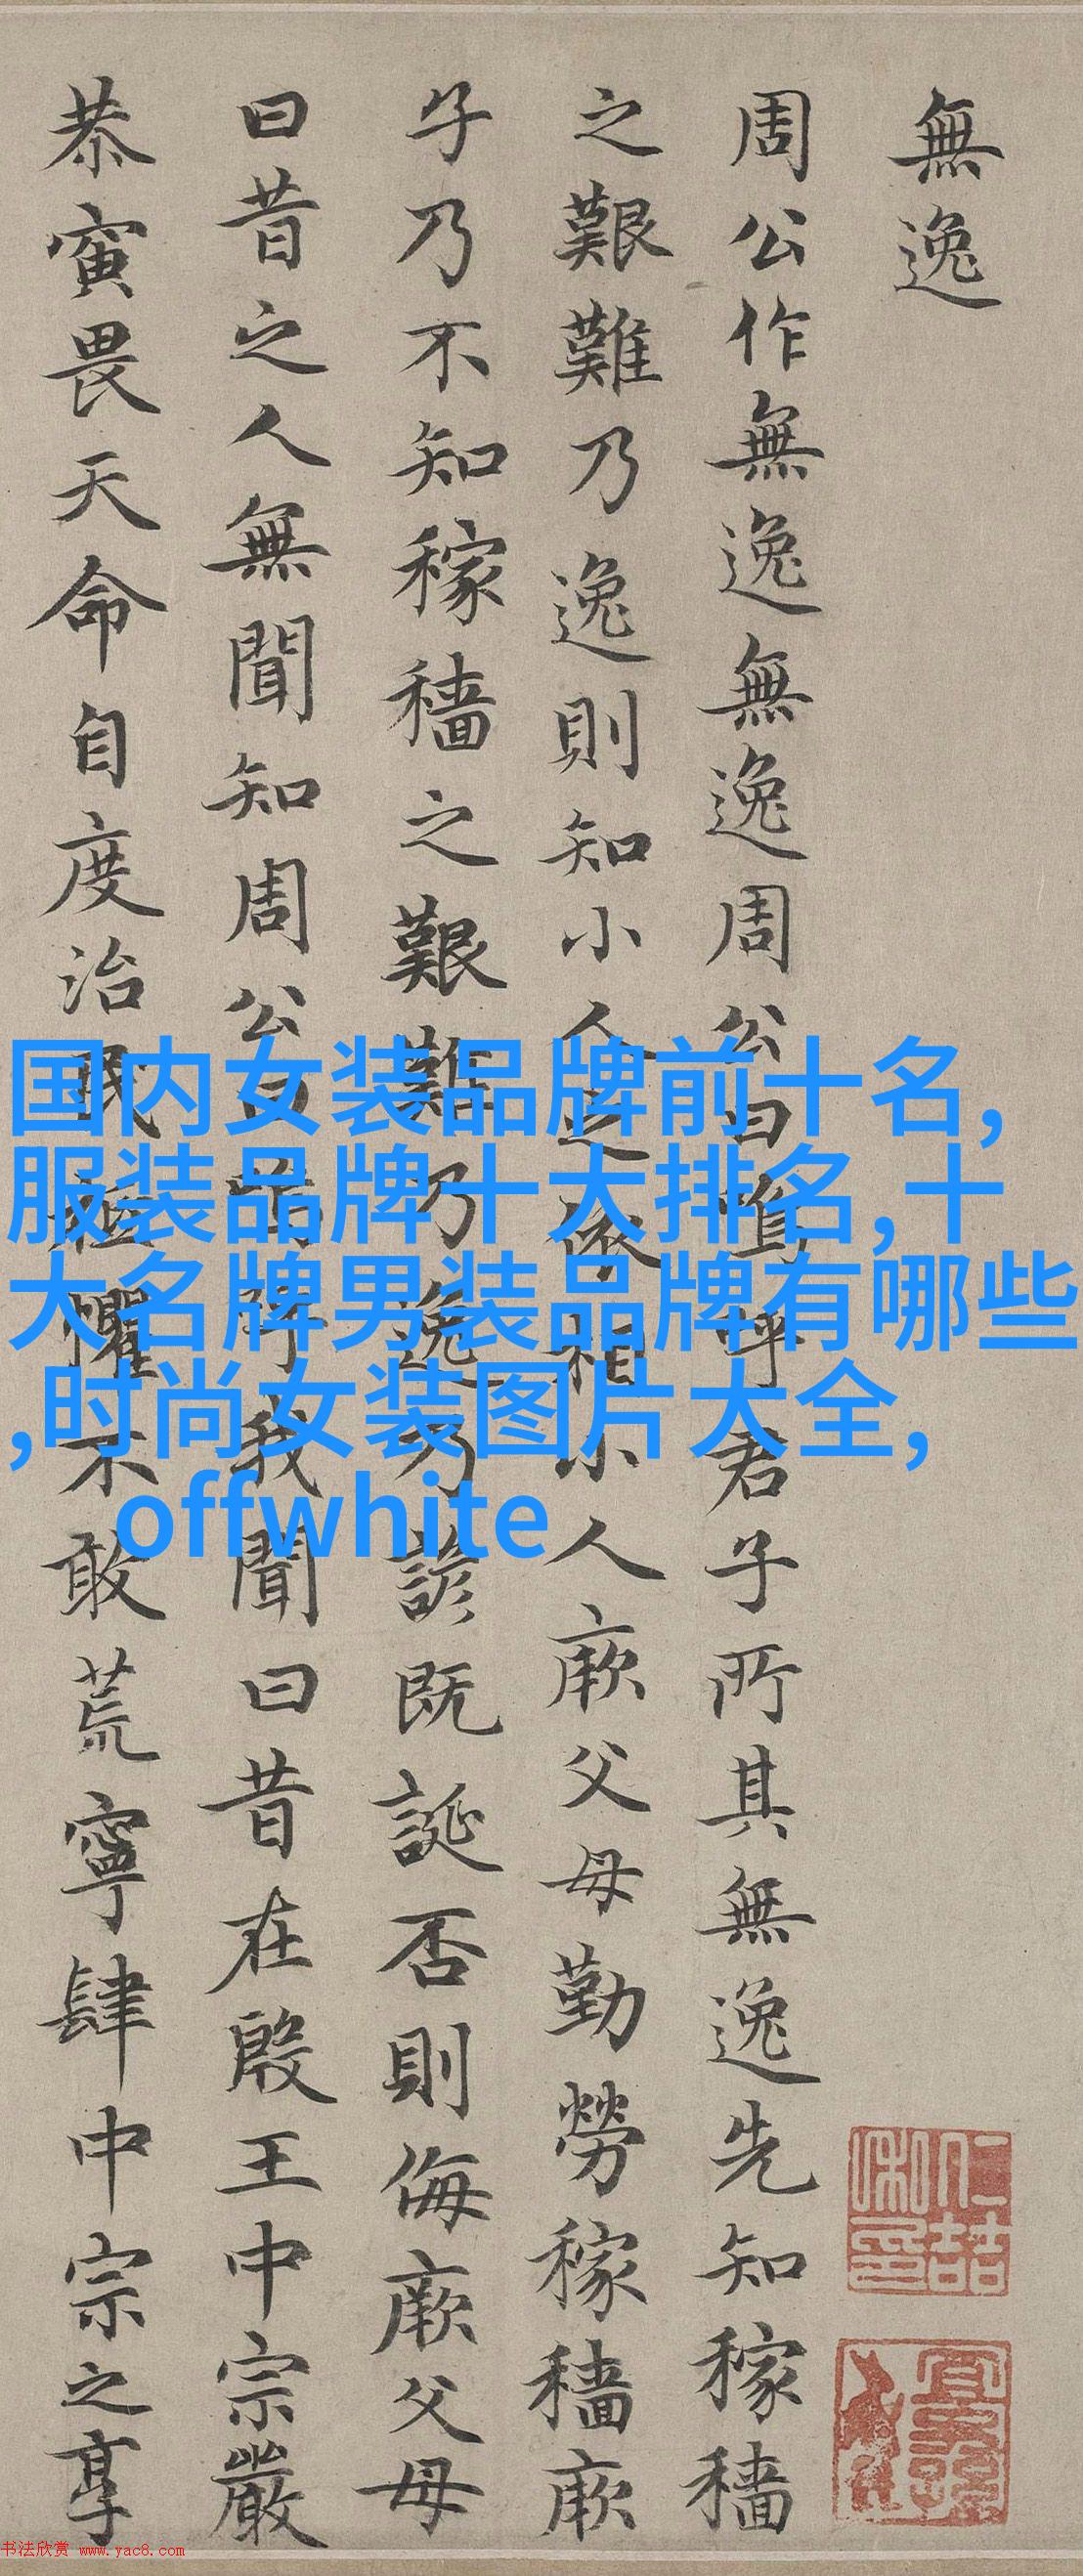 無逸
周公作無逸無逸周公曰嗚呼君子所其無逸先知稼穡
之艱難乃逸則知小人之依相小人厥父母勤勞稼穡厥
子乃不知稼穡之艱難乃逸乃諺既誕否則侮厥父母
曰昔之人無聞知周公曰嗚呼我聞曰昔在殷王中宗嚴
恭寅畏天命自度治民祗懼不敢荒寧肆中宗之享
国内女装品牌前十名,
服装品牌十大排名,十
大名牌男装品牌有哪些
,时尚女装图片大全,
offwhite
书法欣赏 www.yac8.com